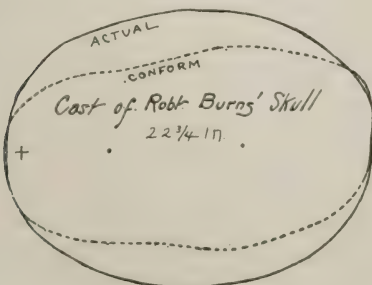 ACTUAL
CONFORM
Cast of Robt. Burns' Skull
22 3/4 In.